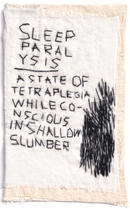 SLEEP
PARAL
YSIS
A STATE OF
TETRAPLEGIA
WHILE CO-
NSCIOUS
IN SHALLOW
SLUMBER